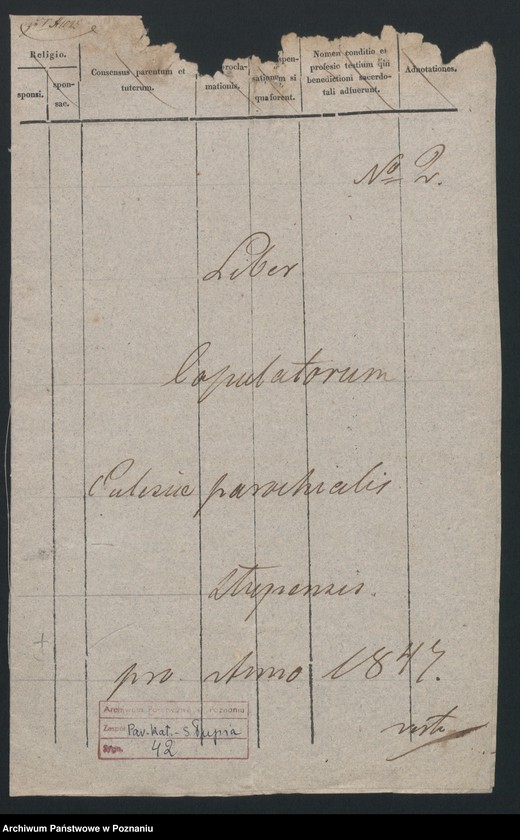 Religio.
sponsi.
spon-
sae.
Consensus parentum et
tutorum.
rocla-
mationis.
spen-
sationum si
qua forent.
Nomen conditio et
profesie testium qui
benedictioni sacerdo-
tali adfuerunt.
Adnotationes.
No 2.
Liber
Copulatorum
Eclesiae parochialis
Stupensis.
pro Anno 1847.
Archiwum Państwowe w Poznaniu
Zespół Par. kat. - Słupia
Sygn. 42
Archiwum Państwowe w Poznaniu